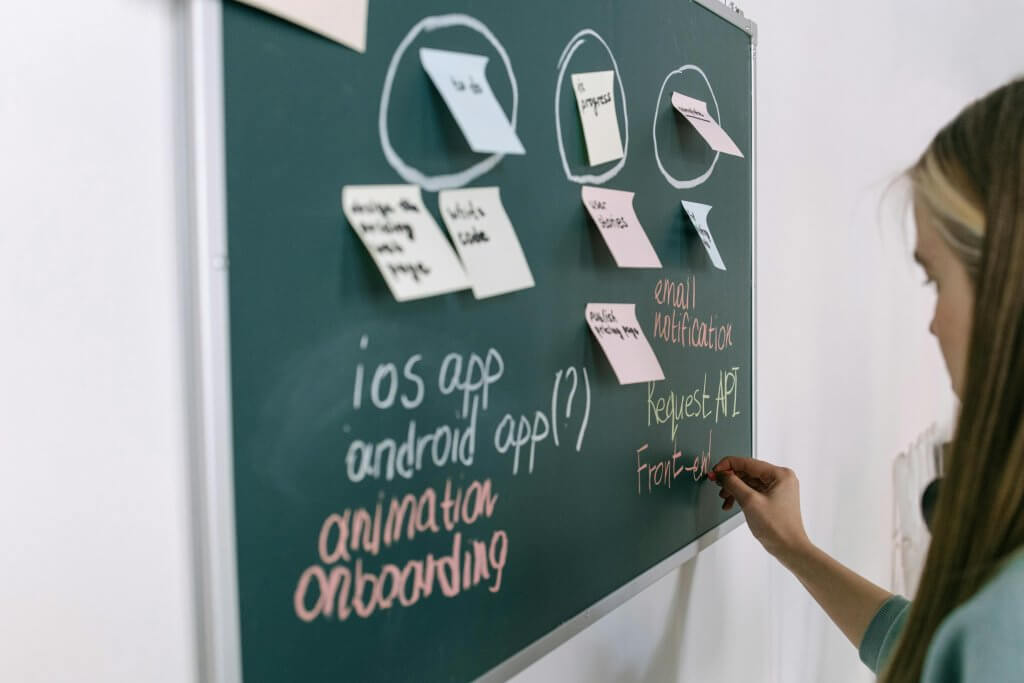 to do
in
progress
design the
pricing
web
page
write
code
user
stories
publish
pricing page
ios app
android app(?)
animation
onboarding
email
notification
Request API
Front-en